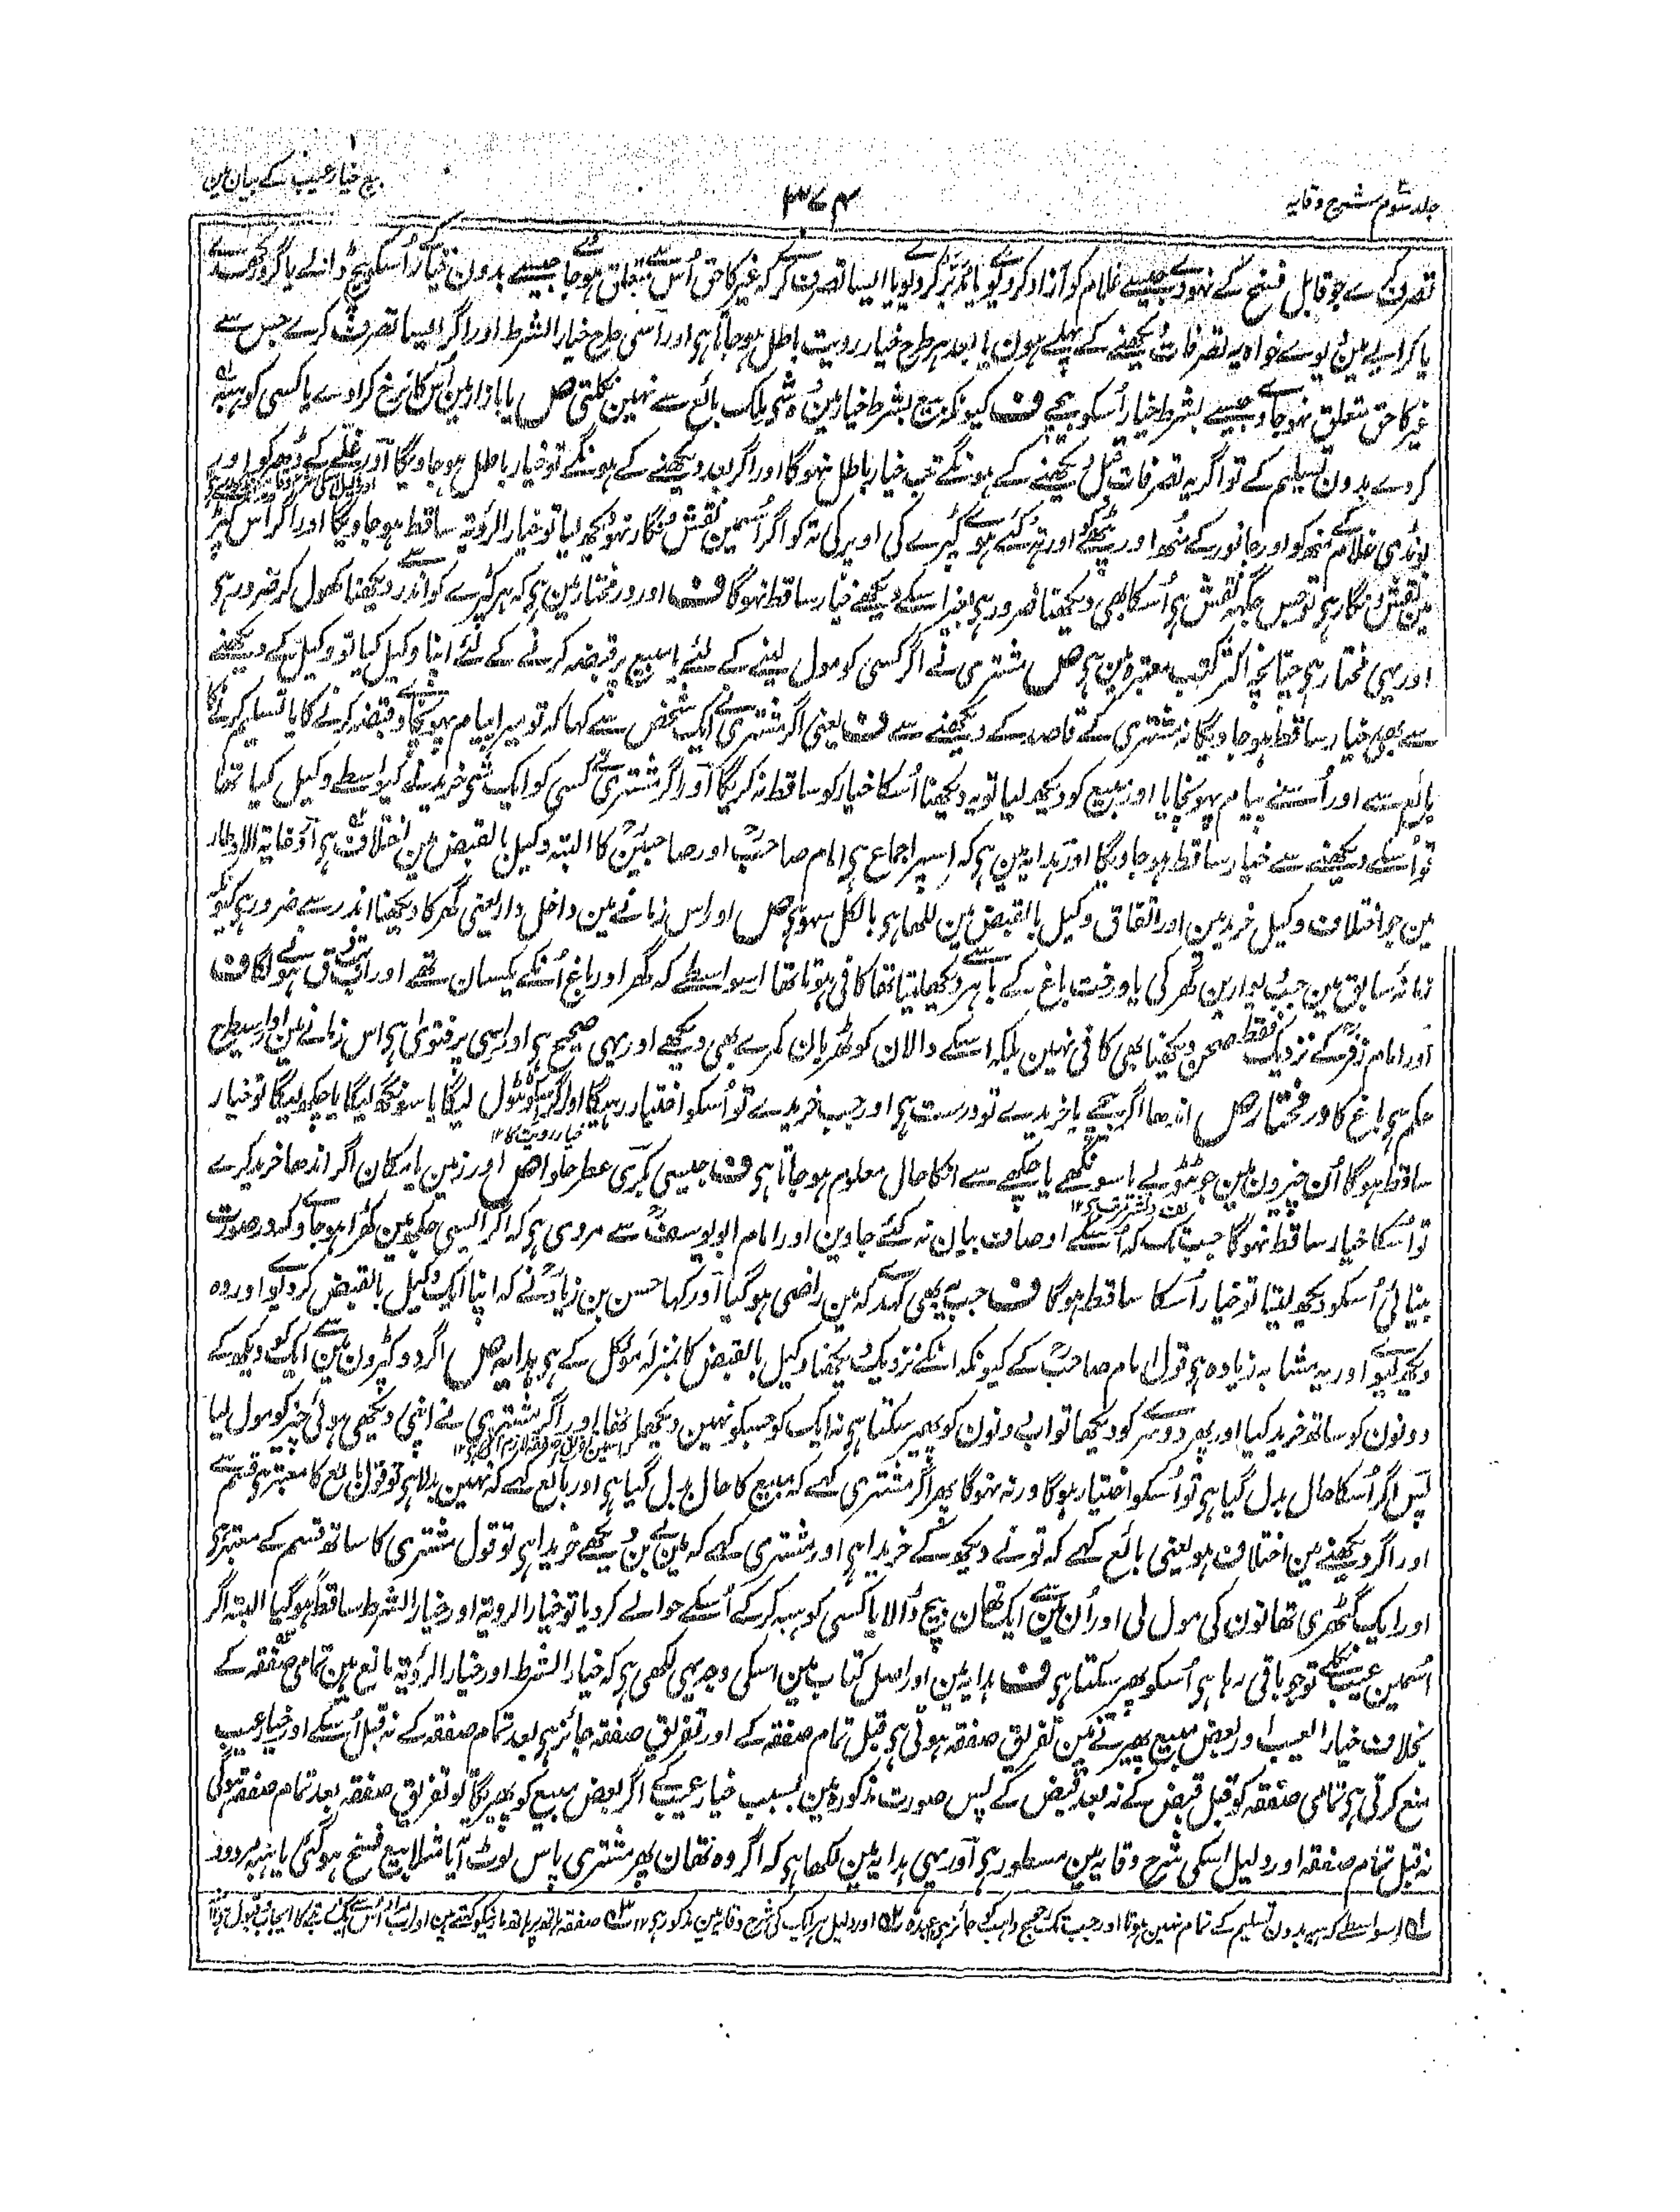 جلد سوم شرح وقایہ
۳۷۴
بیع خیار عیب کے بیان مین
تصرف کرے جو قابل فسخ کے نہووے جیسے غلام کو آزاد کردیوے یا مدبر کردیوے یا ایسا تصرف کرے کہ غیر کا حق اُس سے متعلق ہو جاوے جیسے بدون خیار اُسکو بیچ ڈالے یا گرو رکھدے
یا کرایے مین دیوے خواہ یہ تصرفات دیکھنے کے پہلے ہون یا بعد ہر طرح خیار رویت باطل ہو جاتا ہی اور اسی طرح خیار الشرط اور اگر ایسا تصرف کرے جس سے
غیر کا حق متعلق نہو جاوے جیسے بشرط خیار اُسکو بیچے ف کیونکہ بیع بشرط خیار مین وہ شی ملک بائع سے نہین نکلتی ص یا بازار مین اُس کا نرخ کراوے یا کسی کو ہبہ
کردے بدون تسلیم کے تو اگر یہ تصرفات قبل دیکھنے کے ہونگے تب خیار باطل نہوگا اور اگر بعد دیکھنے کے ہونگے تو خیار باطل ہو جاویگا اور غلے کے ڈھیر کو اور
لونڈی غلام کے منھ کو اور جانور کے منھ اور پٹھے کو اور تہ کئے ہوے کپڑے کی اوپر کی تہ کو اگر اُسمین نقش و نگار نہو دیکھ لیا تو خیار الرویۃ ساقط ہو جاویگا اور اگر اُس کپڑے
مین نقش و نگار ہی تو جس جگہہ نقش ہی اُسکا بھی دیکھنا ضرور ہی بغیر اسکے دیکھے خیار ساقط نہوگا ف اور درمختار مین ہی کہ ہر کپڑے کو اندر سے دیکھنا کھول کر ضرور ہی
اور یہی مختار ہی چنانچہ اکثر کتب معتبرہ مین ہی ص مشتری نے اگر کسی کو مول لینے کے لئے یا مبیع پر قبضہ کرنے کے لئے اپنا وکیل کیا تو وکیل کے دیکھنے
سے بھی خیار ساقط ہو جاویگا نہ مشتری کے قاصد کے دیکھنے سے ف یعنی اگر مشتری نے ایک شخص سے کہا کہ تو میرا پیام پہونچا دے قبضہ کرنے کا یا تسلیم کرنے کا
بائع سے اور اُسنے پیام پہونچایا اور مبیع کو دیکھ لیا تو یہ دیکھنا اُسکا خیار کو ساقط نہ کریگا اور اگر مشتری نے کسی کو ایک شی خریدنے کیواسطے وکیل کیا تھا
تو اُسکے دیکھنے سے خیار ساقط ہو جاویگا اور ہدایہ مین ہی کہ اسپر اجماع ہی امام صاحبؒ اور صاحبینؒ کا البتہ وکیل بالقبض مین اختلاف ہی اور غایۃ الاوطار
مین جو اختلاف وکیل خرید مین اور اتفاق وکیل بالقبض مین لکھا ہی بالکل سہو ہی ص اور اس زمانے مین داخل دار یعنی گھر کا دیکھنا اندر سے ضرور ہی کیونکہ
زمانۂ سابق مین جب دیوارین گھر کی یا درخت باغ کے باہر سے دیکھ لیتا تھا کافی ہوتا تھا اسواسطے کہ گھر اور باغ اُنکے یکسان تھے اور اب فرق ہونے لگا ف
اور امام زفرؒ کے نزدیک فقط صحن دیکھنا بھی کافی نہین بلکہ اسکے دالان کوٹھریان کمرے بھی دیکھے اور یہی صحیح ہی اور اسی پر فتویٰ ہی اس زمانے مین اور اسیطرح
حکم ہی باغ کا درمختار ص اندھا اگر بیچے یا خریدے تو درست ہی اور جب خریدے تو اُسکو اختیار رہیگا اور اگر اُسکو ٹٹول لیگا یا سونگھ لیگا یا چکھ لیگا تو خیار
خیار رویت کا ۱۲
ساقط ہوگا اُن چیزون مین جو ٹٹولے یا سونگھے یا چکھے سے انکا حال معلوم ہو جاتا ہی ف جیسی بکری عطر حلوا ص اور زمین یا مکان اگر اندھا خرید کرے
تو اُسکا خیار ساقط نہوگا جب تک کہ اُسکے اوصاف بیان نہ کئے جاوین اور امام ابو یوسفؒ سے مروی ہی کہ اگر ایسی جگہہ مین کھڑا ہو جاوے کہ در صورت
بینائی اُسکو دیکھ لیتا تو خیار اُسکا ساقط ہوگا ف جب یہ بھی کہدے کہ مین راضی ہو گیا اور کہا حسن بن زیادؒ نے کہ اپنا ایک وکیل بالقبض کردیوے اور وہ
دیکھ لیوے اور یہ مشابہ زیادہ ہی قول امام صاحبؒ کے کیونکہ انکے نزدیک دیکھنا وکیل بالقبض کا بمنزلہ موکل کے ہی ہدایہ ص اگر دو کپڑون مین سے ایک کو دیکھ کے
دونون کو ساتھ خرید کیا اور پھر دوسرے کو دیکھا تو اب دونون کو پھیر سکتا ہی نہ ایک کو جسکو نہین دیکھا تھا اور اگر مشتری نے اپنی دیکھی ہوئی چیز کو مول لیا
پس اگر اُسکا حال بدل گیا ہی تو اُسکو اختیار ہوگا ورنہ نہوگا پھر اگر مشتری کہے کہ مبیع کا حال بدل گیا ہی اور بائع کہے کہ نہین بدلا ہی تو قول بائع کا معتبر ہی قسم سے
اور اگر دیکھنے مین اختلاف ہو یعنی بائع کہے کہ تو نے دیکھ کے خریدا ہی اور مشتری کہے کہ مین نے بن دیکھے خریدا ہی تو قول مشتری کا ساتھ قسم کے معتبر ہی
اور ایک گٹھری تھانون کی مول لی اور اُن مین سے ایک تھان بیچ ڈالا یا کسی کو ہبہ کر کے اُسکے حوالے کردیا تو خیار الرویۃ اور خیار الشرط ساقط ہو گیا البتہ اگر
اسمین عیب نکلے تو جو باقی رہا ہی اُسکو پھیر سکتا ہی ف ہدایہ مین اور اصل کتاب مین اسکی وجہ یہی لکھی ہی کہ خیار الشرط اور خیار الرؤیۃ مانع ہین تمامی صفقہ کے
بخلاف خیار العیب اور بعض مبیع پھیرنے مین تفریق صفقہ ہوتی ہی قبل تمام صفقہ کے اور تفریق صفقہ جائز ہی بعد تمام صفقہ کے نہ قبل اُسکے اور خیار عیب
منع کرتی ہی تمامی صفقہ کو قبل قبض کے نہ بعد قبض کے پس صورت مذکورہ مین بسبب خیار عیب کے اگر بعض مبیع کو پھیریگا تو تفریق صفقہ بعد تمام صفقہ ہوگی
نہ قبل تمام صفقہ اور دلیل اسکی شرح وقایہ مین مسطور ہی اور یہی ہدایہ مین لکھا ہی کہ اگر وہ تھان پھر مشتری پاس لوٹ آیا مثلا بیع فسخ ہو گئی یا ہبہ مردود
۱؎ اسواسطے کہ ہبہ بدون تسلیم کے تمام نہین ہوتا اور جب تک رجوع واہب کو جائز ہی عمدہ ۲؎ اور دلیل ہر ایک کی شرح وقایہ مین مذکور ہی ۱۲ ۳؎ صفقہ ہاتھ پر ہاتھ مارنیکو کہتے ہین اور اب مراد اُس سے